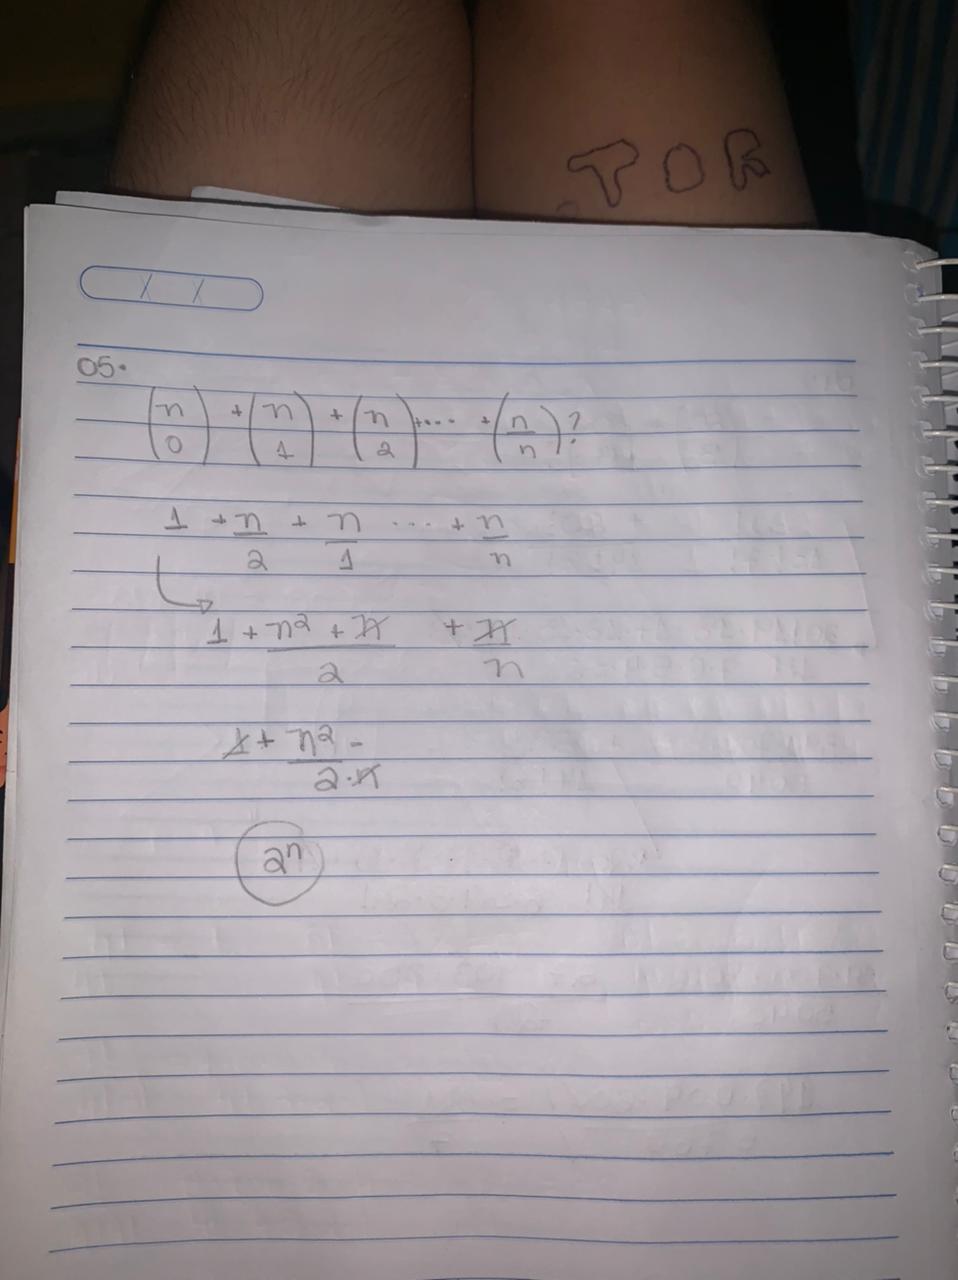 TOR
X X
05.
(n 0) + (n 1) + (n 2) +.... + (n/n)?
1 + n/2 + n/1 ... + n/n
1 + n² + n/2 + n/n
1 + n² - / 2·n
2ⁿ